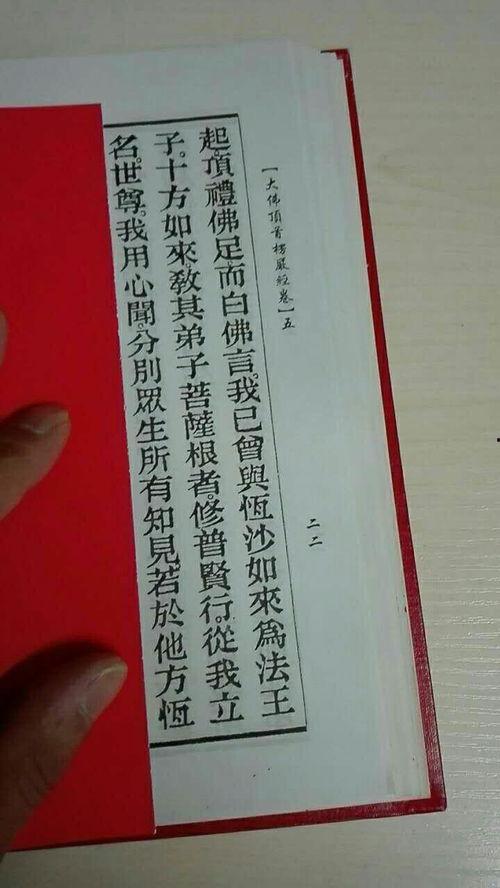 【大佛頂首楞嚴經卷】五
二二
起。頂禮佛足。而白佛言。我已曾與恆沙如來為法王
子。十方如來教其弟子菩薩根者。修普賢行。從我立
名。世尊。我用心聞。分別眾生所有知見。若於他方恆